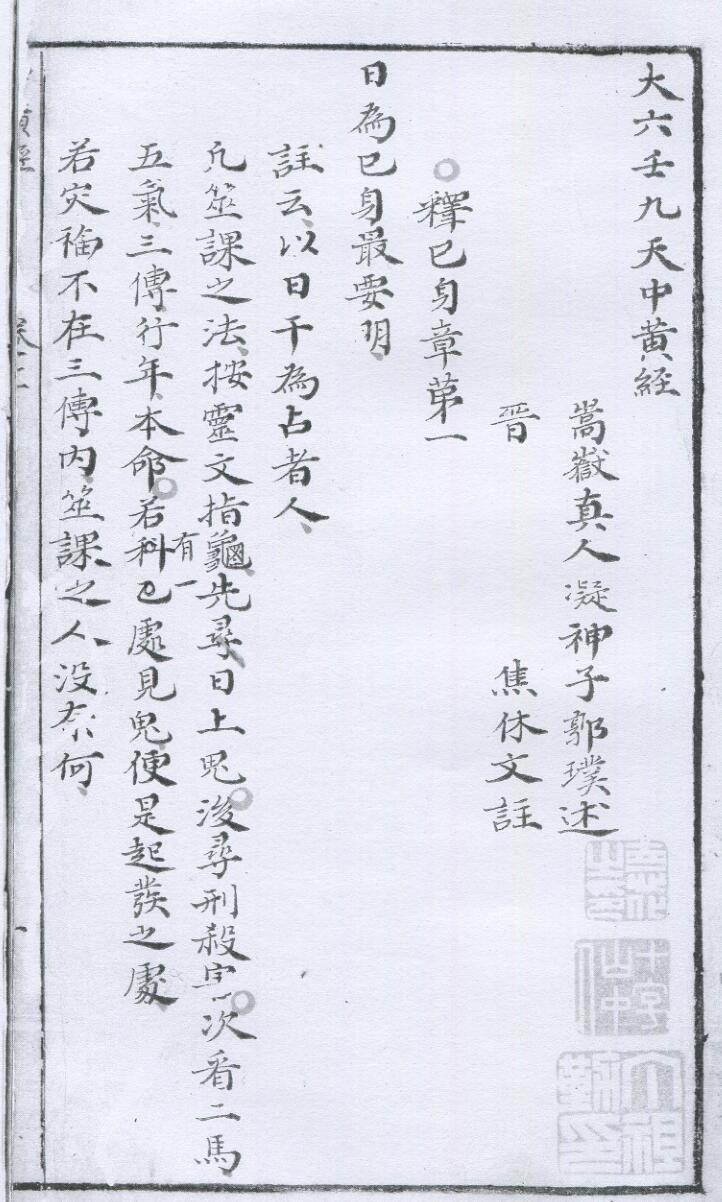 大六壬九天中黄経
嵩嶽真人凝神子郭璞述
晋　焦休文註
釋已身章第一
日為已身最要明
註云以日干為占者人
凢筮課之法按靈文指龜先尋日上鬼後尋刑殺害次看二馬
五氣三傳行年本命若科有一已處見鬼便是起發之處
若灾福不在三傳内筮課之人没奈何